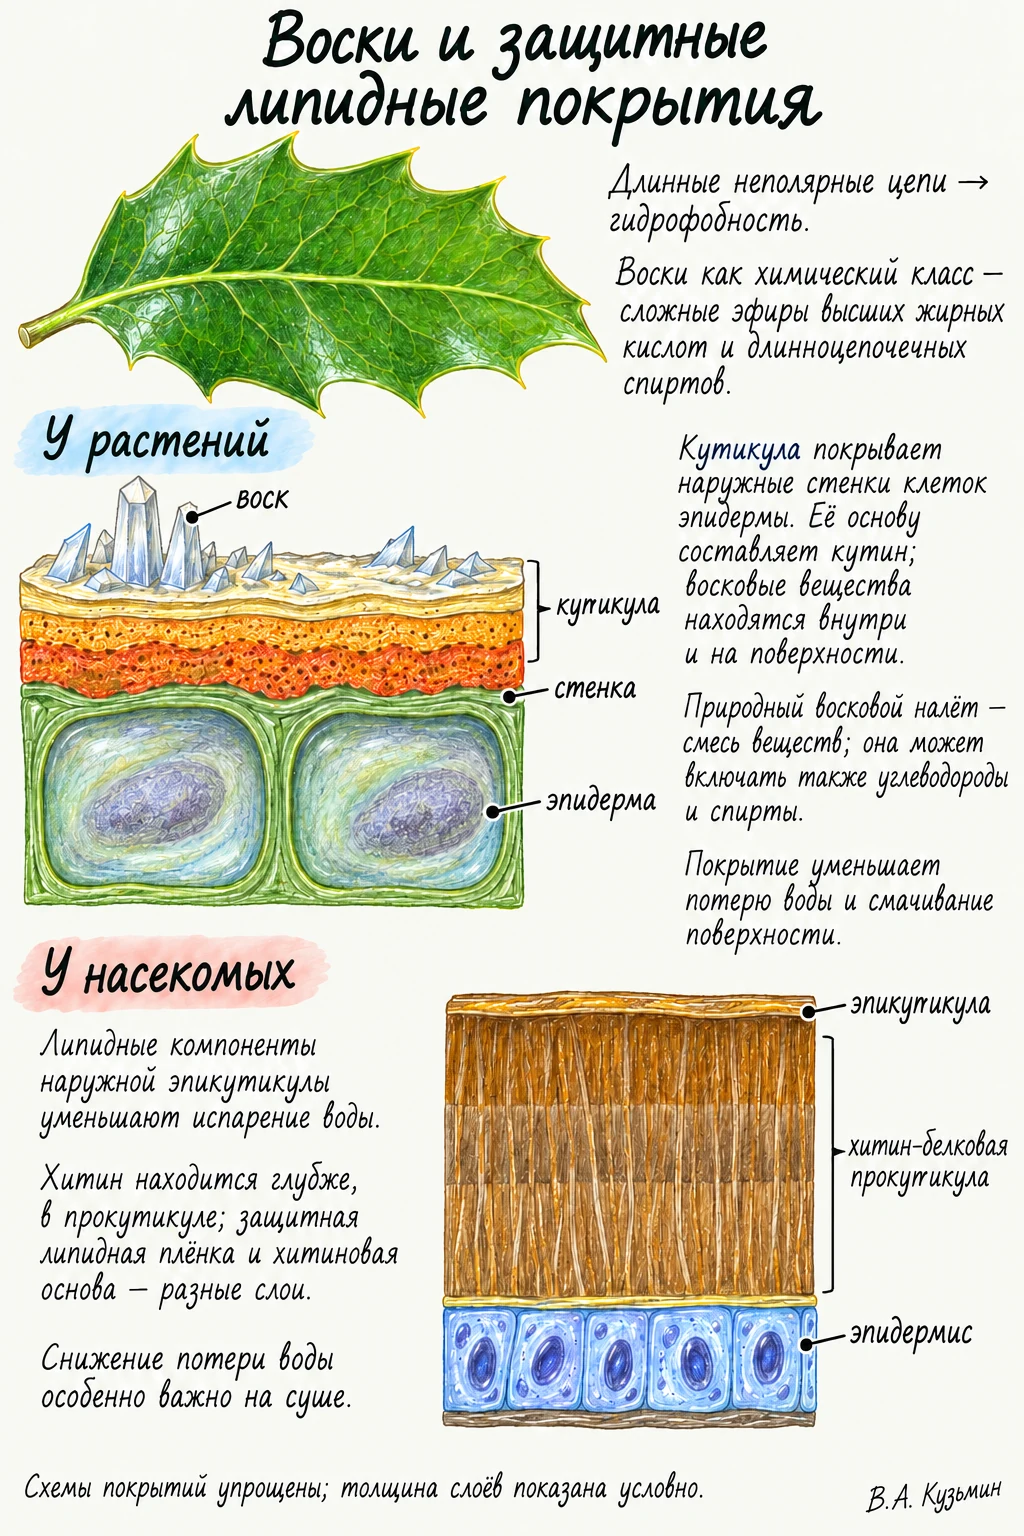 Воски и защитные
липидные покрытия
Длинные неполярные цепи →
гидрофобность.
Воски как химический класс —
сложные эфиры высших жирных
кислот и длинноцепочечных
спиртов.
У растений
воск
кутикула
стенка
эпидерма
Кутикула покрывает
наружные стенки клеток
эпидермы. Её основу
составляет кутин;
восковые вещества
находятся внутри
и на поверхности.
Природный восковой налёт —
смесь веществ; она может
включать также углеводороды
и спирты.
Покрытие уменьшает
потерю воды и смачивание
поверхности.
У насекомых
Липидные компоненты
наружной эпикутикулы
уменьшают испарение воды.
Хитин находится глубже,
в прокутикуле; защитная
липидная плёнка и хитиновая
основа — разные слои.
Снижение потери воды
особенно важно на суше.
эпикутикула
хитин-белковая
прокутикула
эпидермис
Схемы покрытий упрощены; толщина слоёв показана условно.
В.А. Кузьмин